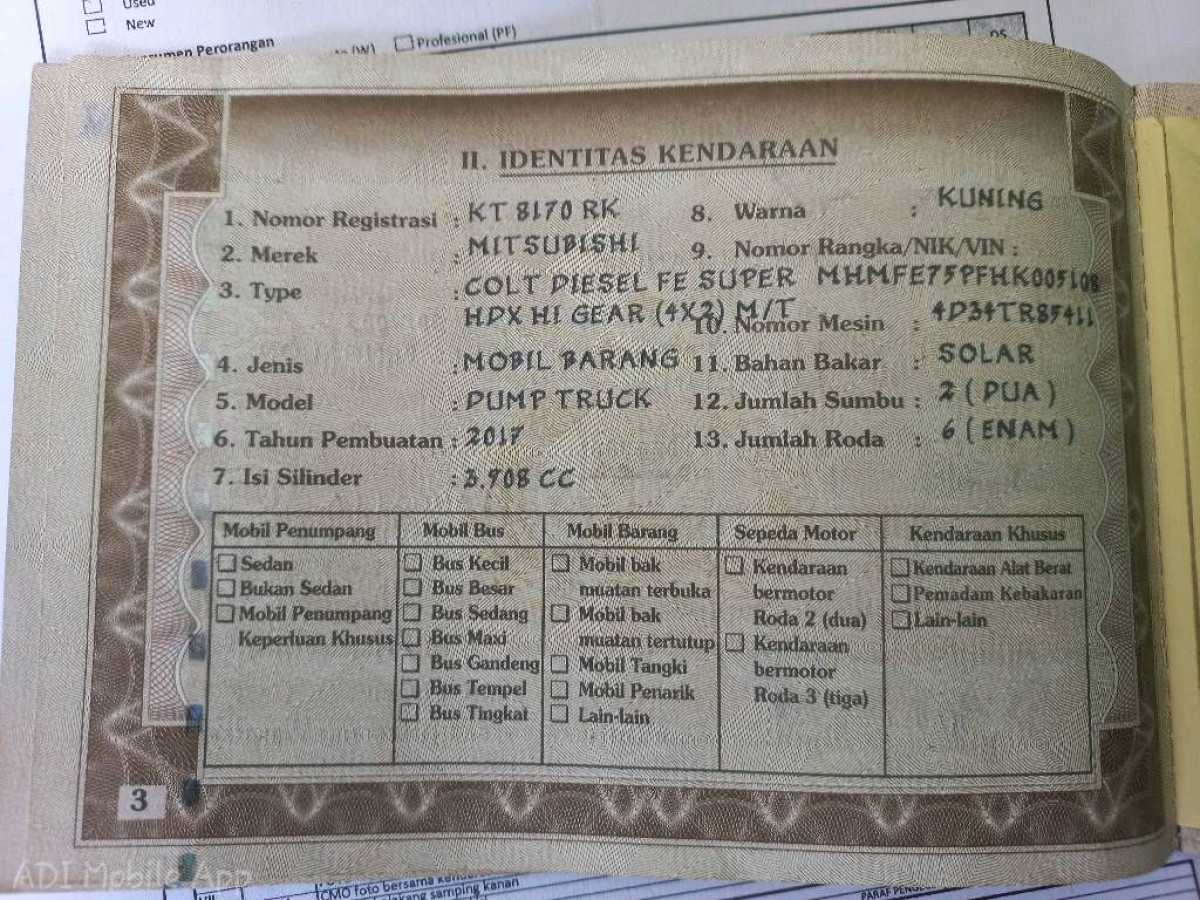 Used
New
Perorangan
(W)
Profesional (PF)
II. IDENTITAS KENDARAAN
1. Nomor Registrasi : KT 8170 RK
2. Merek : MITSUBISHI
3. Type : COLT DIESEL FE SUPER
HDX HI GEAR (4X2) M/T
4. Jenis : MOBIL BARANG
5. Model : DUMP TRUCK
6. Tahun Pembuatan : 2017
7. Isi Silinder : 3.908 CC
8. Warna : KUNING
9. Nomor Rangka/NIK/VIN :
MHMFE75PFHK005108
10. Nomor Mesin : 4D34TR85411
11. Bahan Bakar : SOLAR
12. Jumlah Sumbu : 2 (DUA)
13. Jumlah Roda : 6 (ENAM)
Mobil Penumpang
Sedan
Bukan Sedan
Mobil Penumpang
Keperluan Khusus
Mobil Bus
Bus Kecil
Bus Besar
Bus Sedang
Bus Maxi
Bus Gandeng
Bus Tempel
Bus Tingkat
Mobil Barang
Mobil bak
muatan terbuka
Mobil bak
muatan tertutup
Mobil Tangki
Mobil Penarik
Lain-lain
Sepeda Motor
Kendaraan
bermotor
Roda 2 (dua)
Kendaraan
bermotor
Roda 3 (tiga)
Kendaraan Khusus
Kendaraan Alat Berat
Pemadam Kebakaran
Lain-lain
3
ADI Mobile App
CMO foto bersama
samping kanan
PARAF